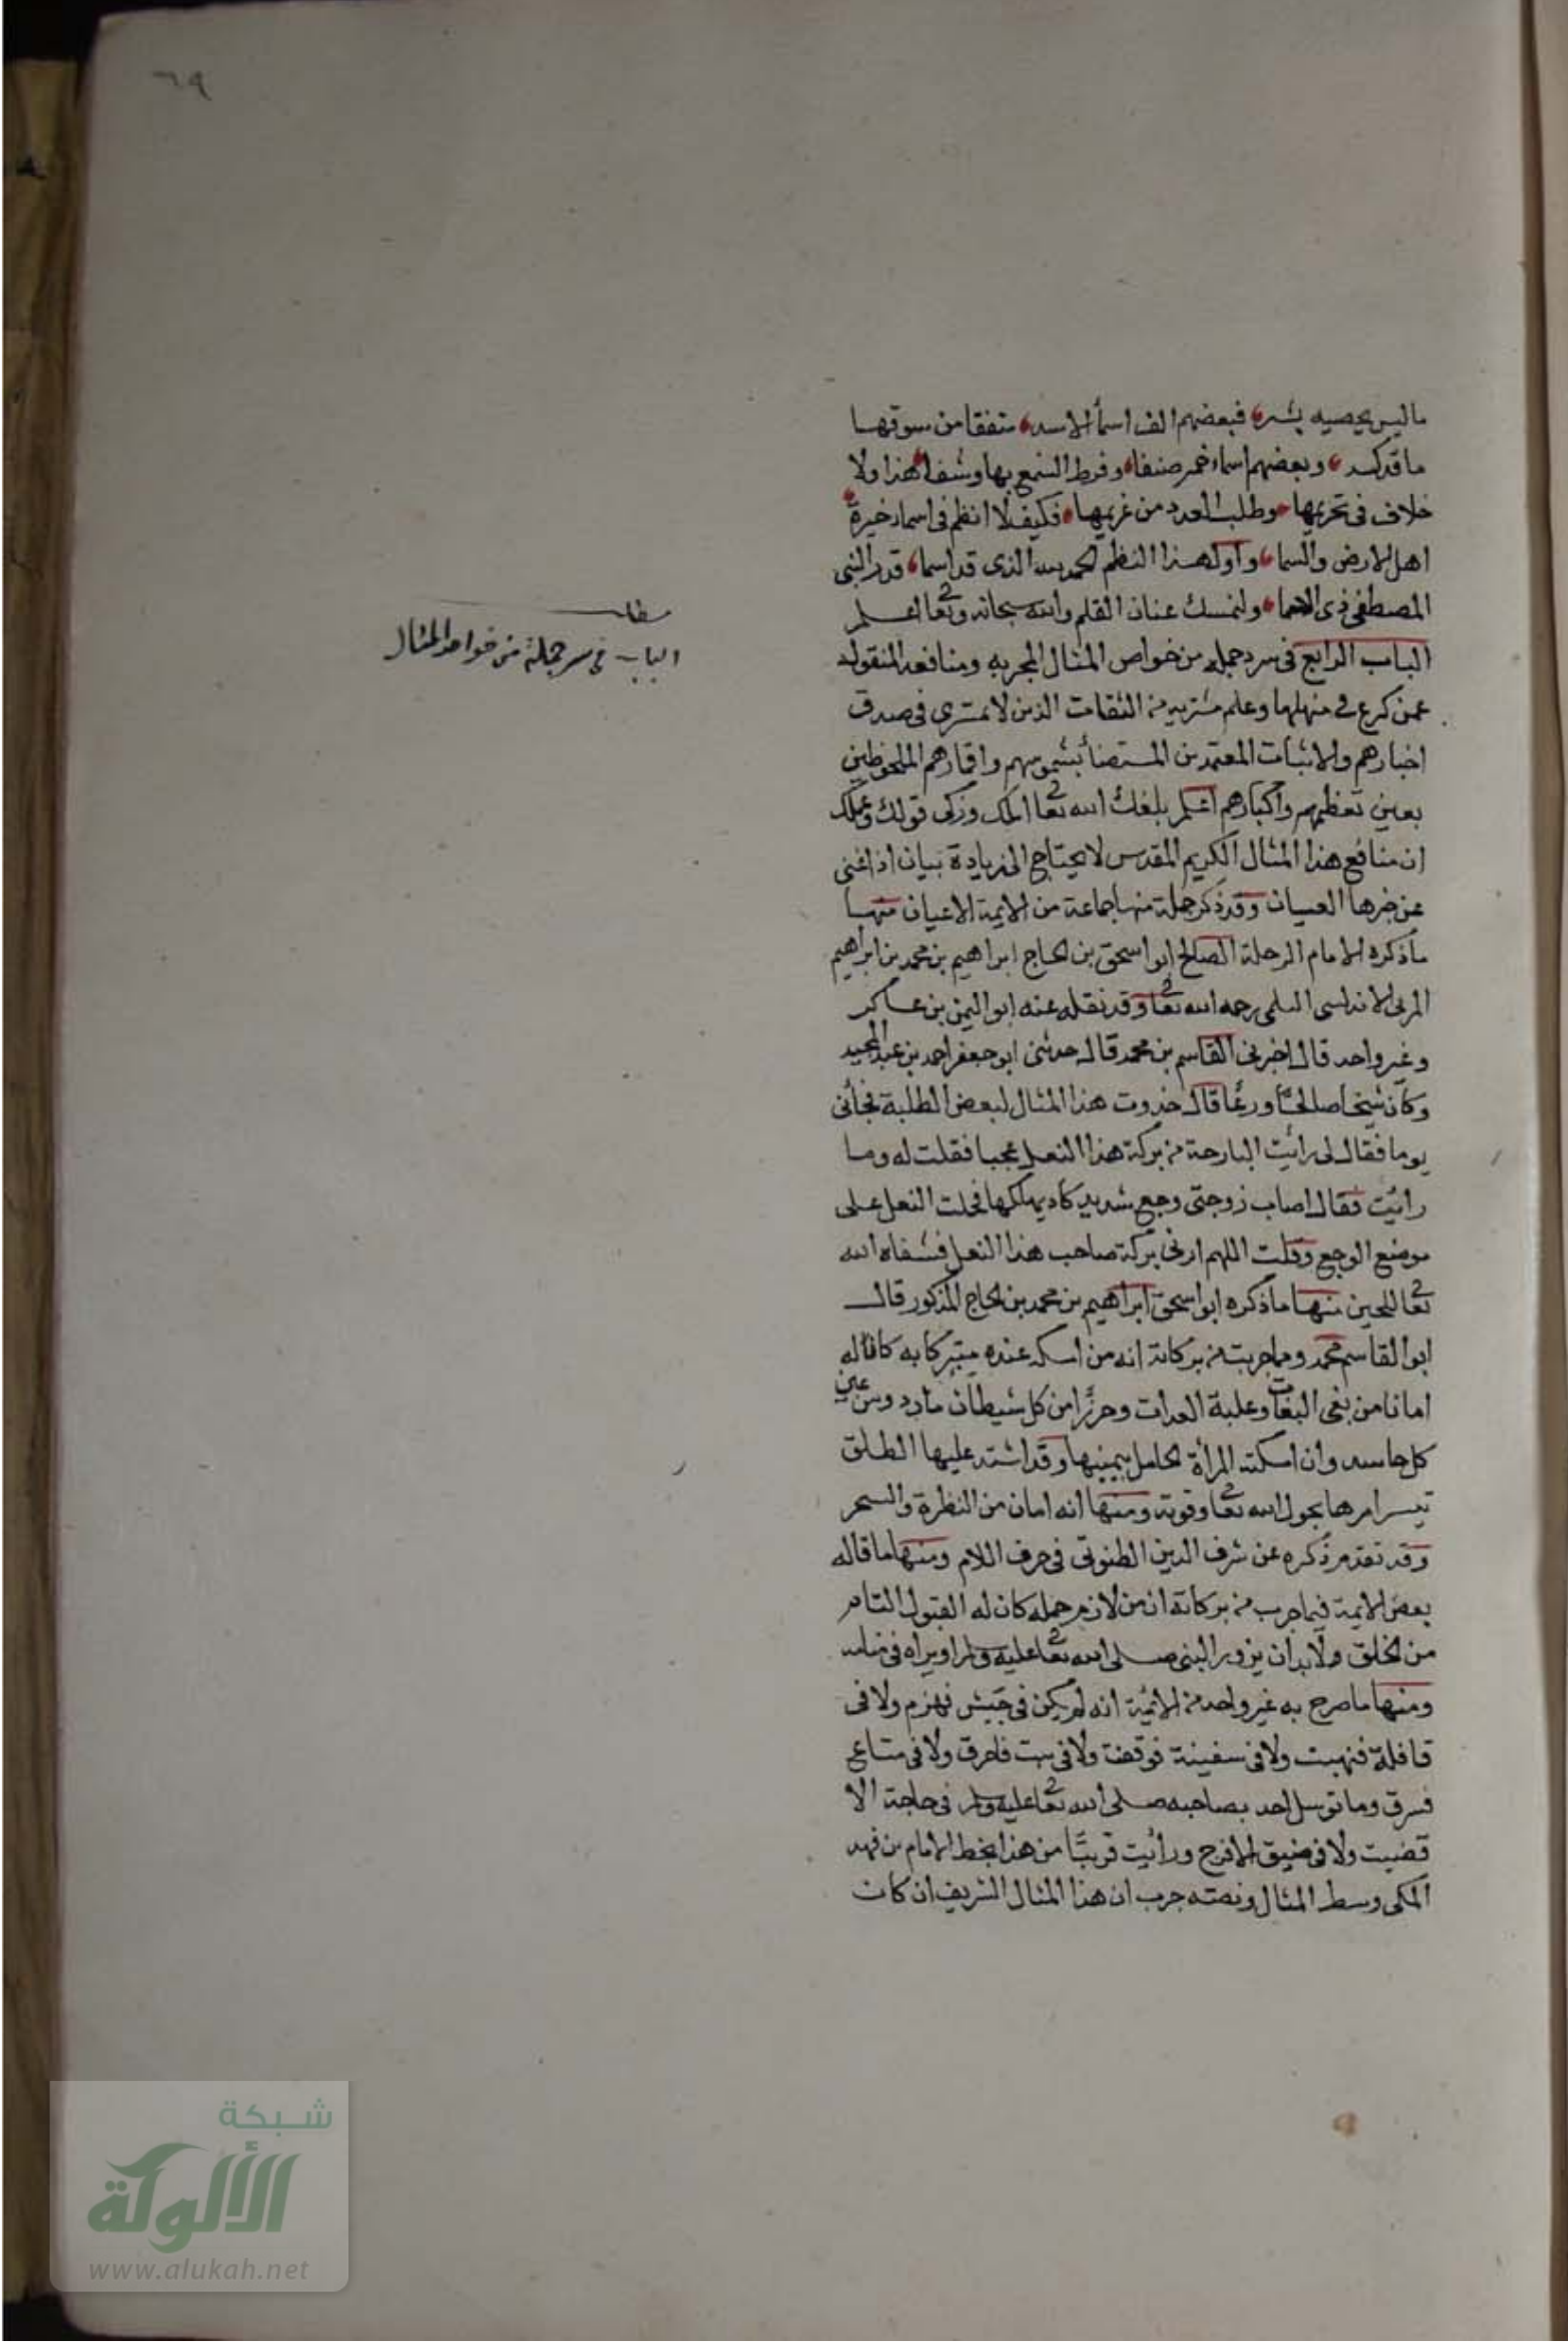 ٦٩
ما ليس يحصيه بشر، فبعضهم الف اسمأ الاسد، منفقا من سوقها
ما قد كسد، وبعضهم اسماء خمر صنفا، وقرط السمع بها وشنفا، هذا ولا
خلاف في تحريمها، وطلب العدد من غريمها، فكيف لا انظم في اسماء خيرة
اهل الارض والسما، واول هذا النظم الحمد لله الذي قد اسما، قدر النبي
المصطفى ذي الاسما، ولنمسك عنان القلم والله سبحانه وتعا اعلم
الباب الرابع في سرد جملة من خواص المثال المجربه ومنافعه المنقوله
عمن كرع في منهلها وعلم مشربه من الثقات الذين لا يمترى في صدق
اخبارهم والاثبات المعتمدين المستضأ بشموسهم واقمارهم الملحوظين
بعين تعظيمهم واكبارهم اعلم بلغك الله تعا املك وزكى قولك وعملك
ان منافع هذا المثال الكريم المقدس لا يحتاج الى زيادة بيان اذ اغنى
عن خبرها العيان وقد ذكر جملة منها جماعة من الايمة الاعيان منها
ما ذكره الامام الرحلة الصالح ابو اسحق بن الحاج ابراهيم بن محمد بن ابراهيم
المري الاندلسي السلمي رحمه الله تعا وقد نقله عنه ابو اليمن بن عساكر
وغير واحد قال اخبرني القاسم بن محمد قال حدثني ابو جعفر احمد بن عبد المجيد
وكان شيخا صالحا ورعا قال حذوت هذا المثال لبعض الطلبة فجأني
يوما فقال لى رائيت البارحة من بركة هذا النعل عجبا فقلت له وما
رائيت فقال اصاب زوجتى وجع شديد كاد يهلكها فجلت النعل على
موضع الوجع وقلت اللهم ارني بركة صاحب هذا النعل فشفاه الله
تعا للحين منها ما ذكره ابو اسحق ابراهيم بن محمد بن الحاج المذكور قال
ابو القاسم محمد ومما جربت من بركاته انه من امسكه عنده متبركا به كان له
امانا من بغي البغات وغلبة العدات وحرزا من كل شيطان مارد وعين
كل حاسد وان امسكته المرأة الحامل بيمينها وقد اشتد عليها الطلق
تيسر امرها بحول الله تعا وقوته ومنها انه امان من النظرة والسحر
وقد تقدم ذكره عن شرف الدين الطنوبي في حرف اللام ومنها ما قاله
بعض الايمة فيما جرب من بركاته ان من لازم حمله كان له القبول التام
من الخلق ولا بد ان يزور النبي صلى الله تعا عليه وسلم او يراه في منامه
ومنها ما صرح به غير واحد من الائمة انه لم يكن في جيش فهزم ولا في
قافلة فنهبت ولا في سفينة فوقفت ولا في بيت فاحرق ولا في متاع
فسرق وما توسل احد بصاحبه صلى الله تعا عليه وسلم في حاجة الا
قضيت ولا في ضيق الا فرج ورائيت قريبا من هذا بخط الامام بن فهد
المكي وسط المثال ونصه جرب ان هذا المثال الشريف ان كان
مطلب
الباب في سرد جملة من خواص المثال
شبكة
الألوكة
www.alukah.net